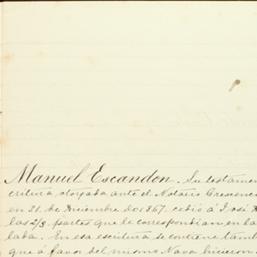 Manuel Escandon. Su testamen
critura otorgada ante el Notario Crescenc
en 21 de Diciembre de 1867. cedió á José
las 2/3 partes que le correspondian en la
laba. En esa escritura se contiene tamb
que á favor del mismo Nava hicieron